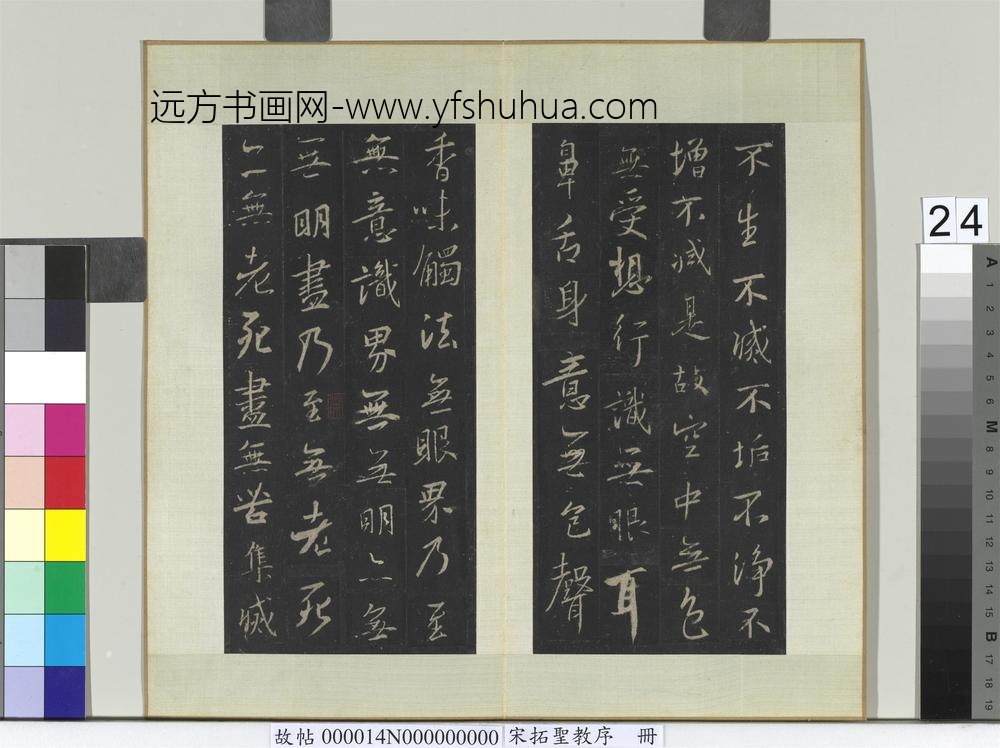 远方书画网-www.yfshuhua.com
24
不生不滅不垢不淨不
增不減是故空中無色
無受想行識無眼耳
鼻舌身意無色聲
香味觸法無眼界乃至
無意識界無無明亦無
無明盡乃至無老死
亦無老死盡無苦集滅
A
1
2
3
4
5
6
M
8
9
10
11
12
13
14
15
B
17
18
19
故帖 000014N000000000 宋拓聖教序 冊